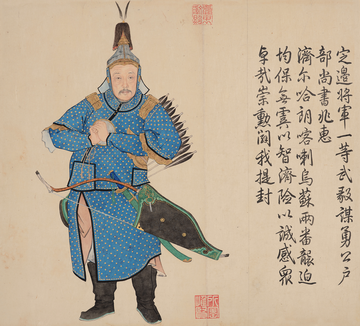 定邊將軍一等武毅謀勇公户
部尚書兆惠
濟尔哈朗喀喇烏蘇兩番襲迫
均保無虞以智濟險以誠感眾
卓哉崇勳闢我提封